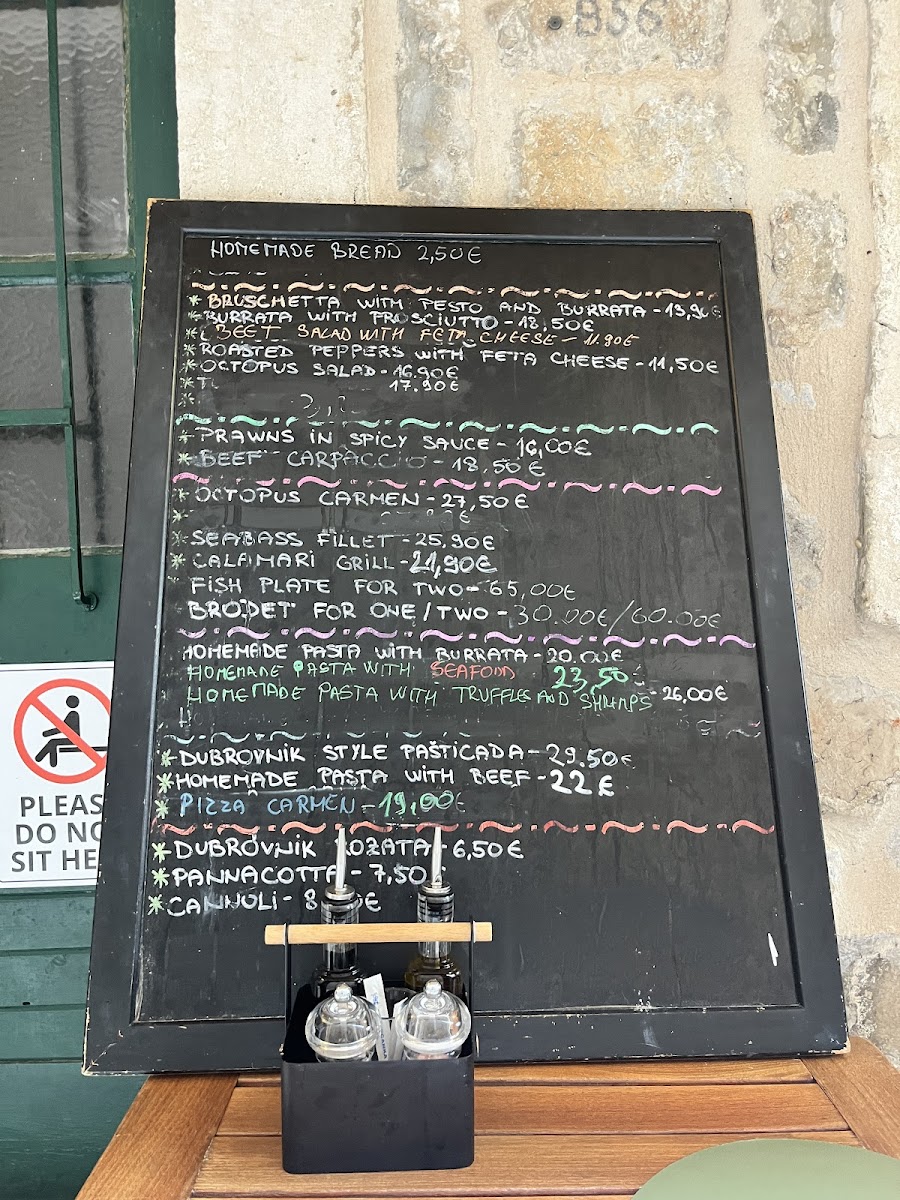 B56
HOMEMADE BREAD 2,50€
* BRUSCHETTA WITH PESTO AND BURRATA - 13,90€
* BURRATA WITH PROSCIUTTO - 18,50€
* BEET SALAD WITH FETA CHEESE - 11.90€
* ROASTED PEPPERS WITH FETA CHEESE - 11,50€
* OCTOPUS SALAD - 16.90€
* 17.90€
* PRAWNS IN SPICY SAUCE - 16,00€
* BEEF CARPACCIO - 18,50€
* OCTOPUS CARMEN - 27,50€
* SEABASS FILLET - 25,90€
* CALAMARI GRILL - 21,90€
FISH PLATE FOR TWO - 65,00€
BRODET FOR ONE/TWO - 30.00€/60.00€
HOMEMADE PASTA WITH BURRATA - 20.00€
HOMEMADE PASTA WITH SEAFOOD 23,50
HOMEMADE PASTA WITH TRUFFLES AND SHRIMPS - 26,00€
* DUBROVNIK STYLE PAŠTICADA - 29.50€
* HOMEMADE PASTA WITH BEEF - 22€
* PIZZA CARMEN - 19,00€
* DUBROVNIK ROZATA - 6,50€
* PANNACOTTA - 7,50
* CANNOLI - 8 €
PLEAS
DO NO
SIT HE